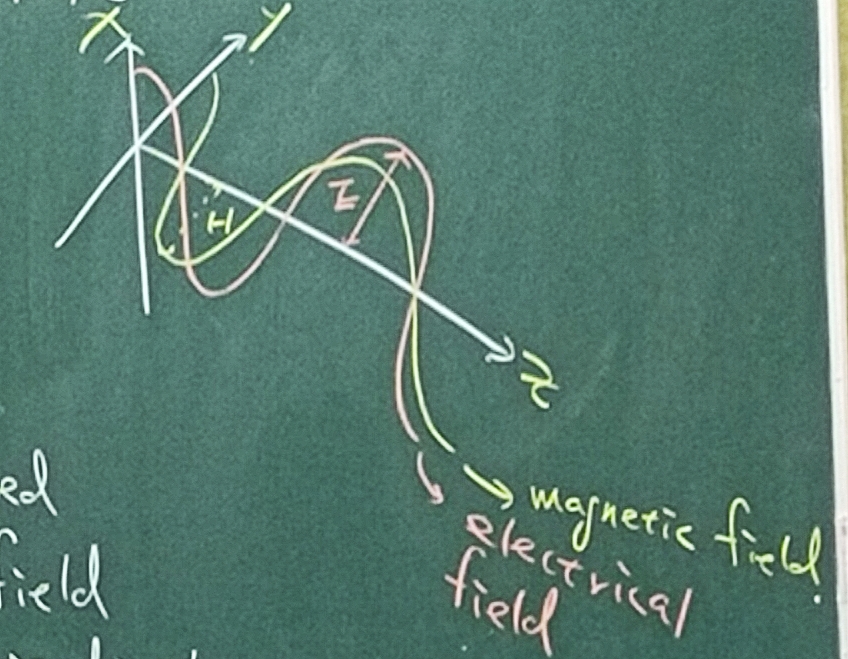 X
Y
E
H
Z
ed
magnetic field
electrical
field
field